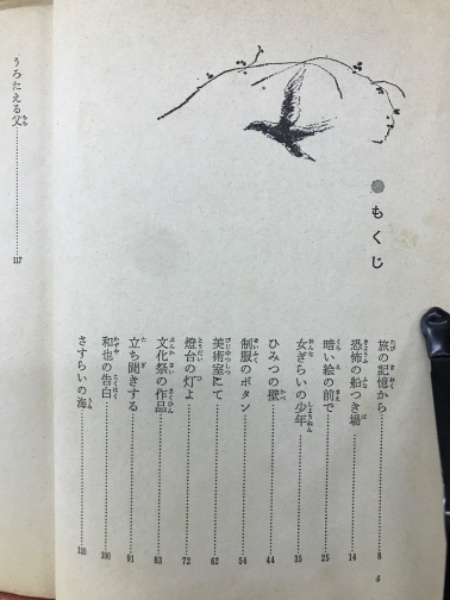 もくじ
旅の記憶から……8
恐怖の船つき場……14
暗い絵の前で……25
女ぎらいの少年……35
ひみつの壁……44
制服のボタン……54
美術室にて……62
燈台の灯よ……72
文化祭の作品……83
立ち聞きする……91
和也の告白……100
さすらいの海……110
4
うろたえる父……117